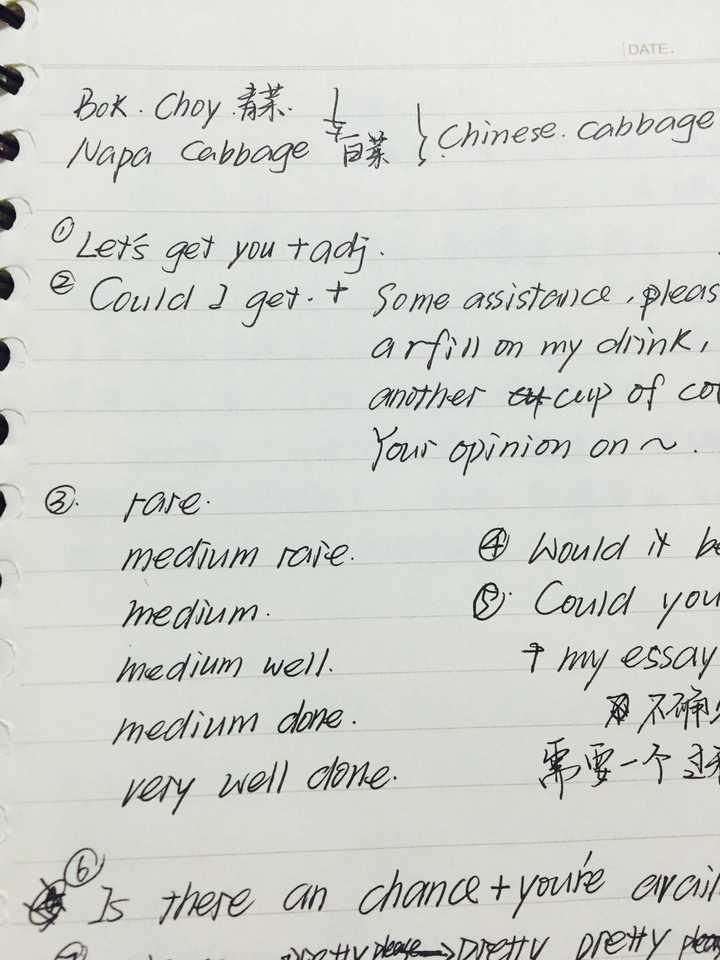 DATE.
Bok. Choy. 青菜.
Napa Cabbage 白菜 } Chinese. cabbage
① Let's get you + adj.
② Could I get. + Some assistance, pleas
a rfill on my drink,
another cup of co
Your opinion on ~.
③. rare.
medium rare.
medium.
medium well.
medium done.
very well done.
④ Would it be
⑤. Could you
+ my essay
不确
需要一个
⑥ Is there an chance + you're avail
pretty please → pretty pretty